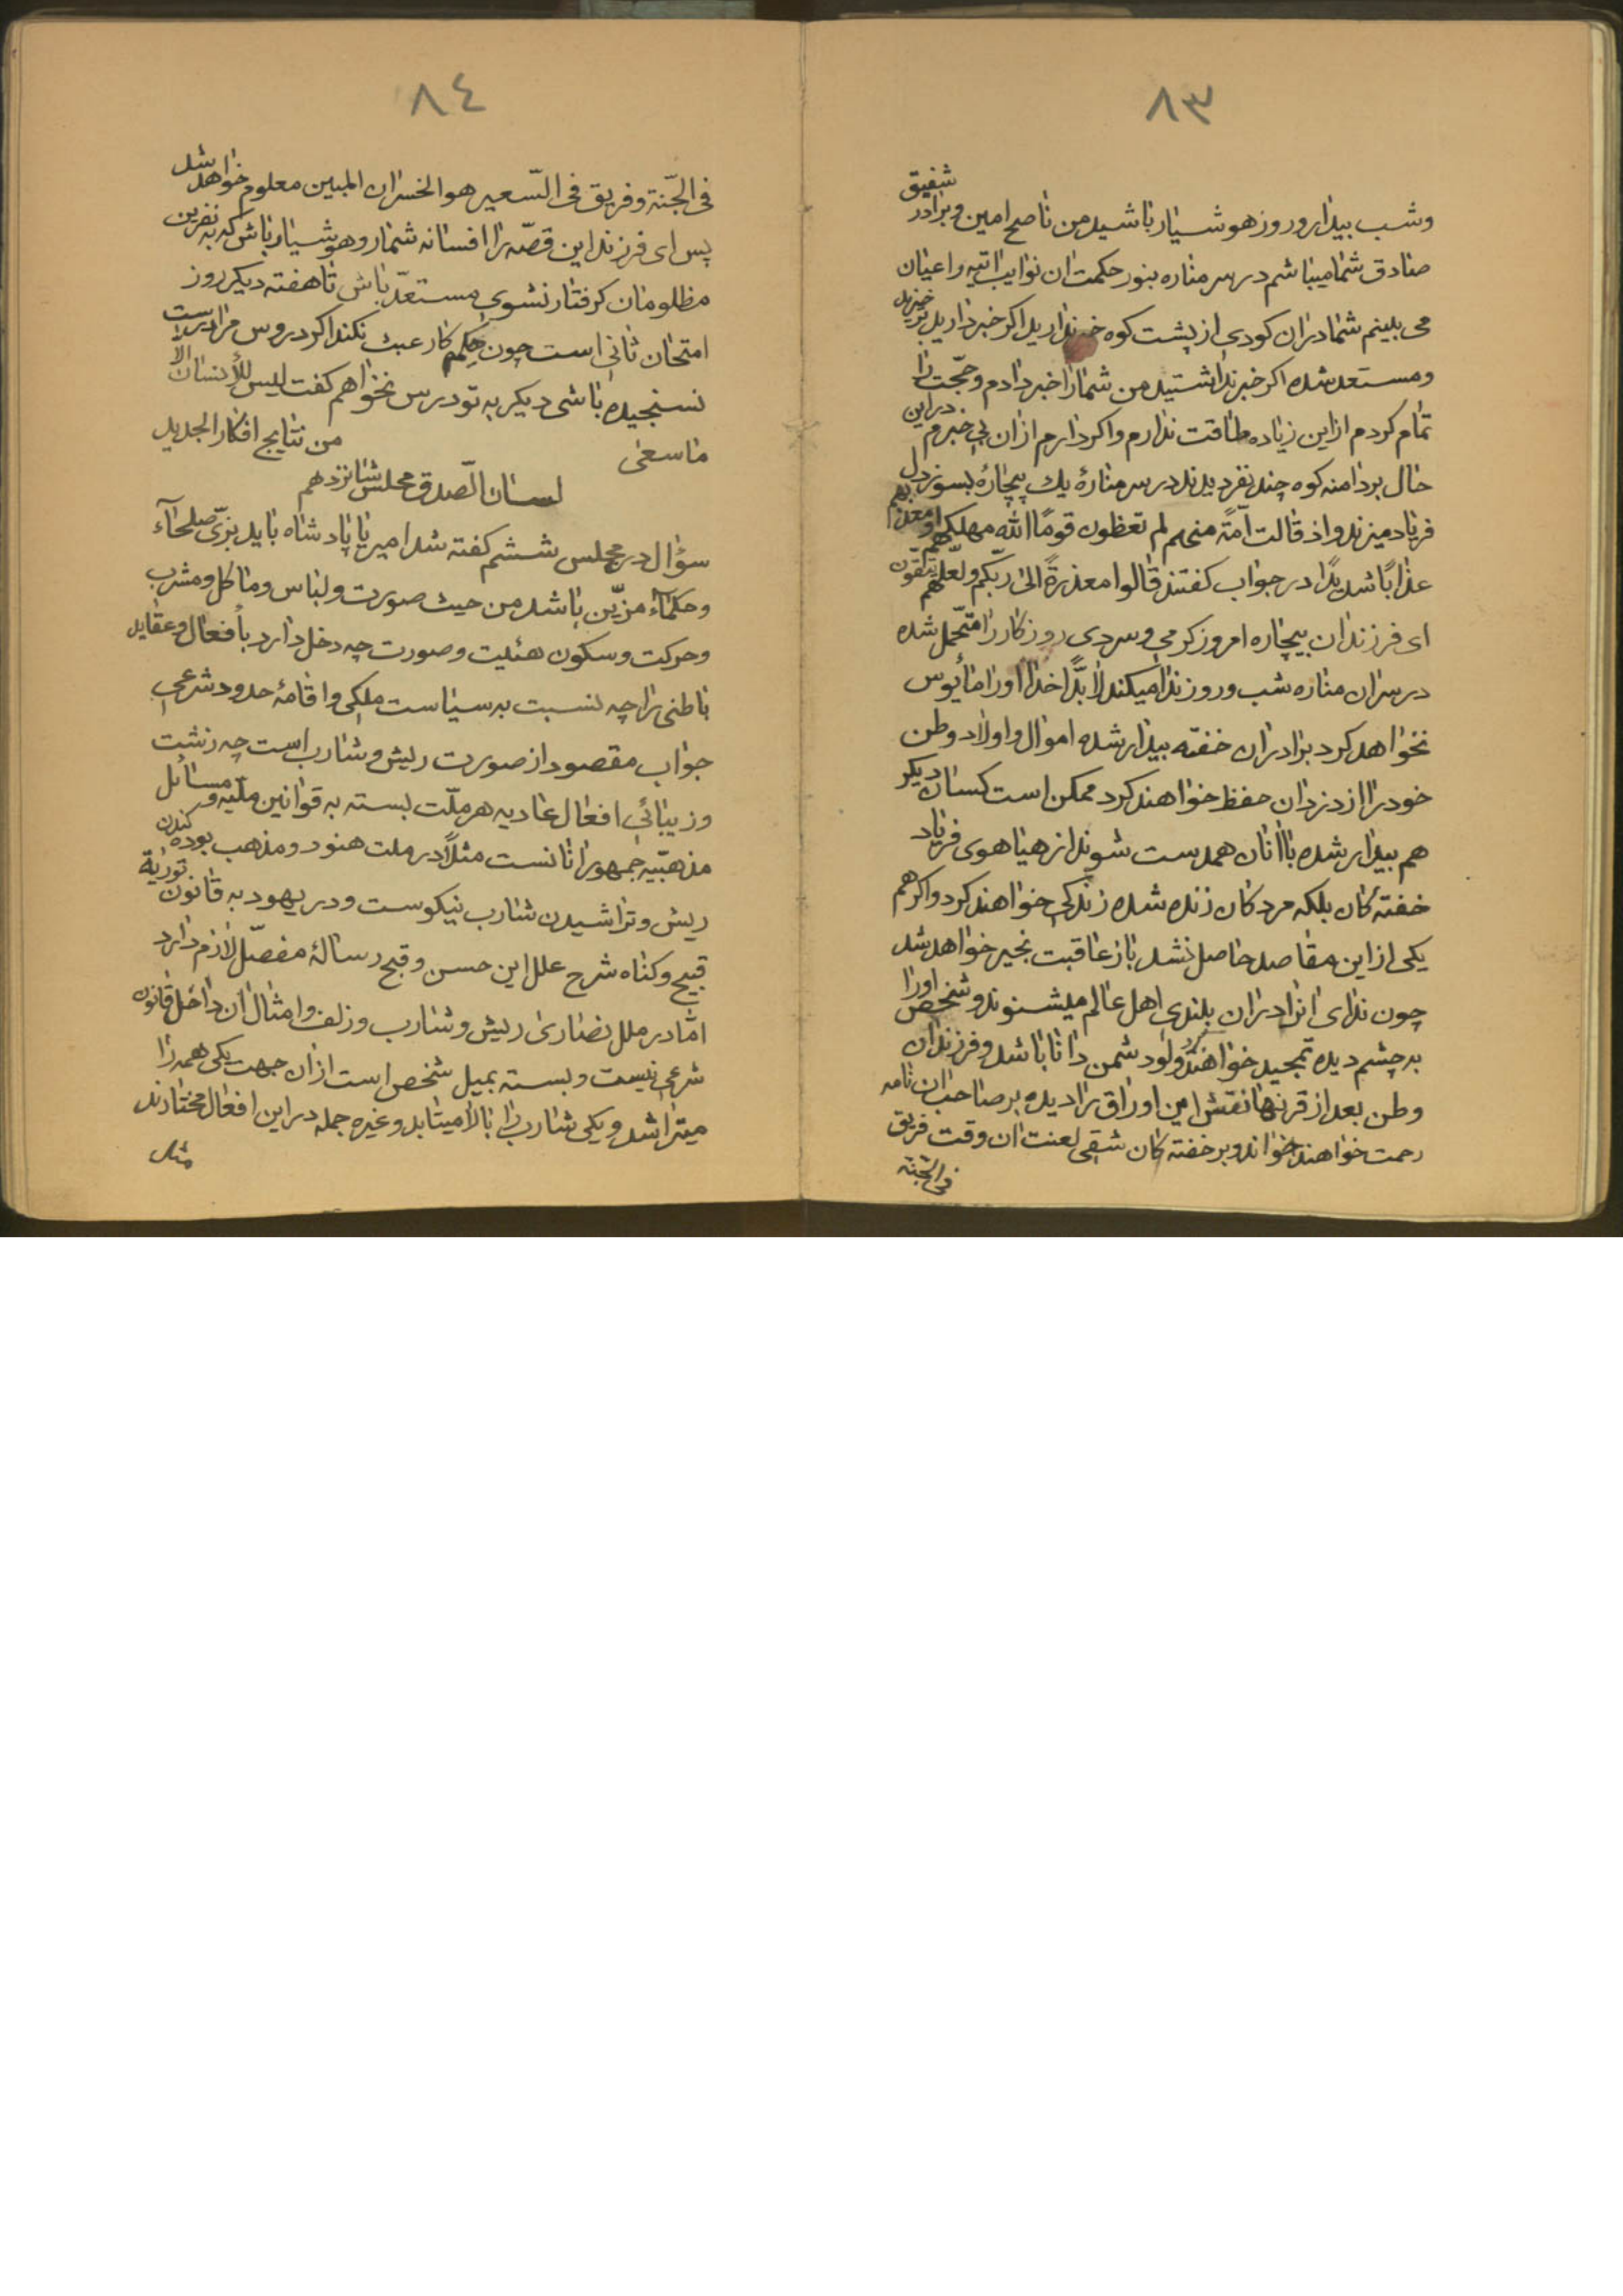 ٨٣
وشب بیدار وروز هوشیار باشید من ناصح امین وبرادر شفیق
صادق شما میباشم در سر مناره بنور حکمت ان نوایب اتیه را عیان
می بینم شما دران کودی از پشت کوه خبر ندارید اکر خبر دارید برخیزید
ومستعد شده اکر خبر نداشتید من شمارا خبر دادم وحجّت را
تمام کردم ازاین زیاده طاقت ندارم واکر دارم ازان بی خبرم دراین
حال بردامنه کوه چند نفر دیدند در سر منارهٔ یك بیچارهٔ بسوز دل
فریاد میزند واذ قالت امّة منهم لم تعظون قومًا الله مهلکهم او معذبهم
عذابًا شدیدًا در جواب کفتند قالوا معذرةً الی ربّکم ولعلّهم یتّقون
ای فرزندان بیچاره امروز کرمی وسردی روزکار را متحمّل شده
در سران مناره شب وروز ندا میکند لابدًّا خدا اورا مأیوس
نخواهد کرد برادران خفته بیدار شده اموال واولاد وطن
خودرا از دزدان حفظ خواهند کرد ممکن است کسان دیکر
هم بیدار شده باانان همدست شوند از هیاهوی فریاد
خفتهٔ کان بلکه مرد کان زنده شده زندکی خواهند کرد واکر هم
یکی ازاین مقاصد حاصل نشد باز عاقبت بخیر خواهد شد
چون ندای انرا دران بلندی اهل عالم میشنوند وشخص اورا
به چشم دیده تمجید خواهند کرد ولود شمن دانا باشد وفرزندان
وطن بعد از قرنها نقش این اوراق را دیده بر صاحب ان نامه
رحمت خواهند خواند وبر خفته کان شقی لعنت ان وقت فریق
فی الجنّة
٨٤
فی الجنّة وفریق فی السّعیر هو الخسران المبین معلوم خواهد شد
پس ای فرزند این قصّه را افسانه شمار وهوشیار باش که به نفرین
مظلومان کرفتار نشوی مستعدّ باش تا هفته دیکر روز
امتحان ثانی است چون حکیم کار عبث نکند اکر دروس مرا درست
نسنجیده باشی دیکر به تو درس نخواهم کفت لیس للأنسان الّا
ماسعی
من نتایج افکار الجدید
لسان الصّدق مجلس شانزدهم
سؤال در مجلس ششم کفته شد امیر یا پادشاه باید بزیّ صلحآء
وحکمآء مزیّن باشد من حیث صورت ولباس وماکل ومشرب
وحرکت وسکون هئیت وصورت چه دخل دارد بأفعال وعقاید
باطنی را چه نسبت به سیاست ملکی واقامهٔ حدود شرعی
جواب مقصود از صورت ریش وشارب است چه زشت
وزیبائی افعال عادیه هر ملّت بسته به قوانین ملّیه ومسائل
مذهبیّه جمهور انانست مثلًا در ملت هنود ومذهب بوده کندن
ریش وتراشیدن شارب نیکوست ودر یهود به قانون توریة
قبیح وکناه شرح علل این حسن وقبح رسالهٔ مفصّل لازم دارد
امّا در ملل نصاری ریش وشارب وزلف وامثال ان داخل قانون
شرعی نیست وبسته بمیل شخص است ازان جهت یکی همه را
میتراشد ویکی شارب را بالا میتابد وغیره جمله دراین افعال مختارند
مثل